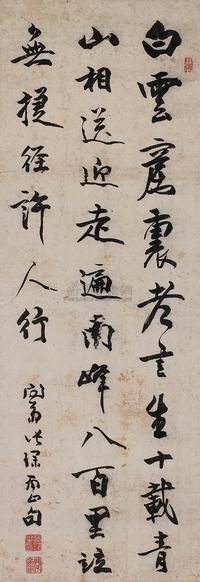 白雲窩裏老書生十載青
山相送迎走遍南峰八百里竝
無捷徑許人行